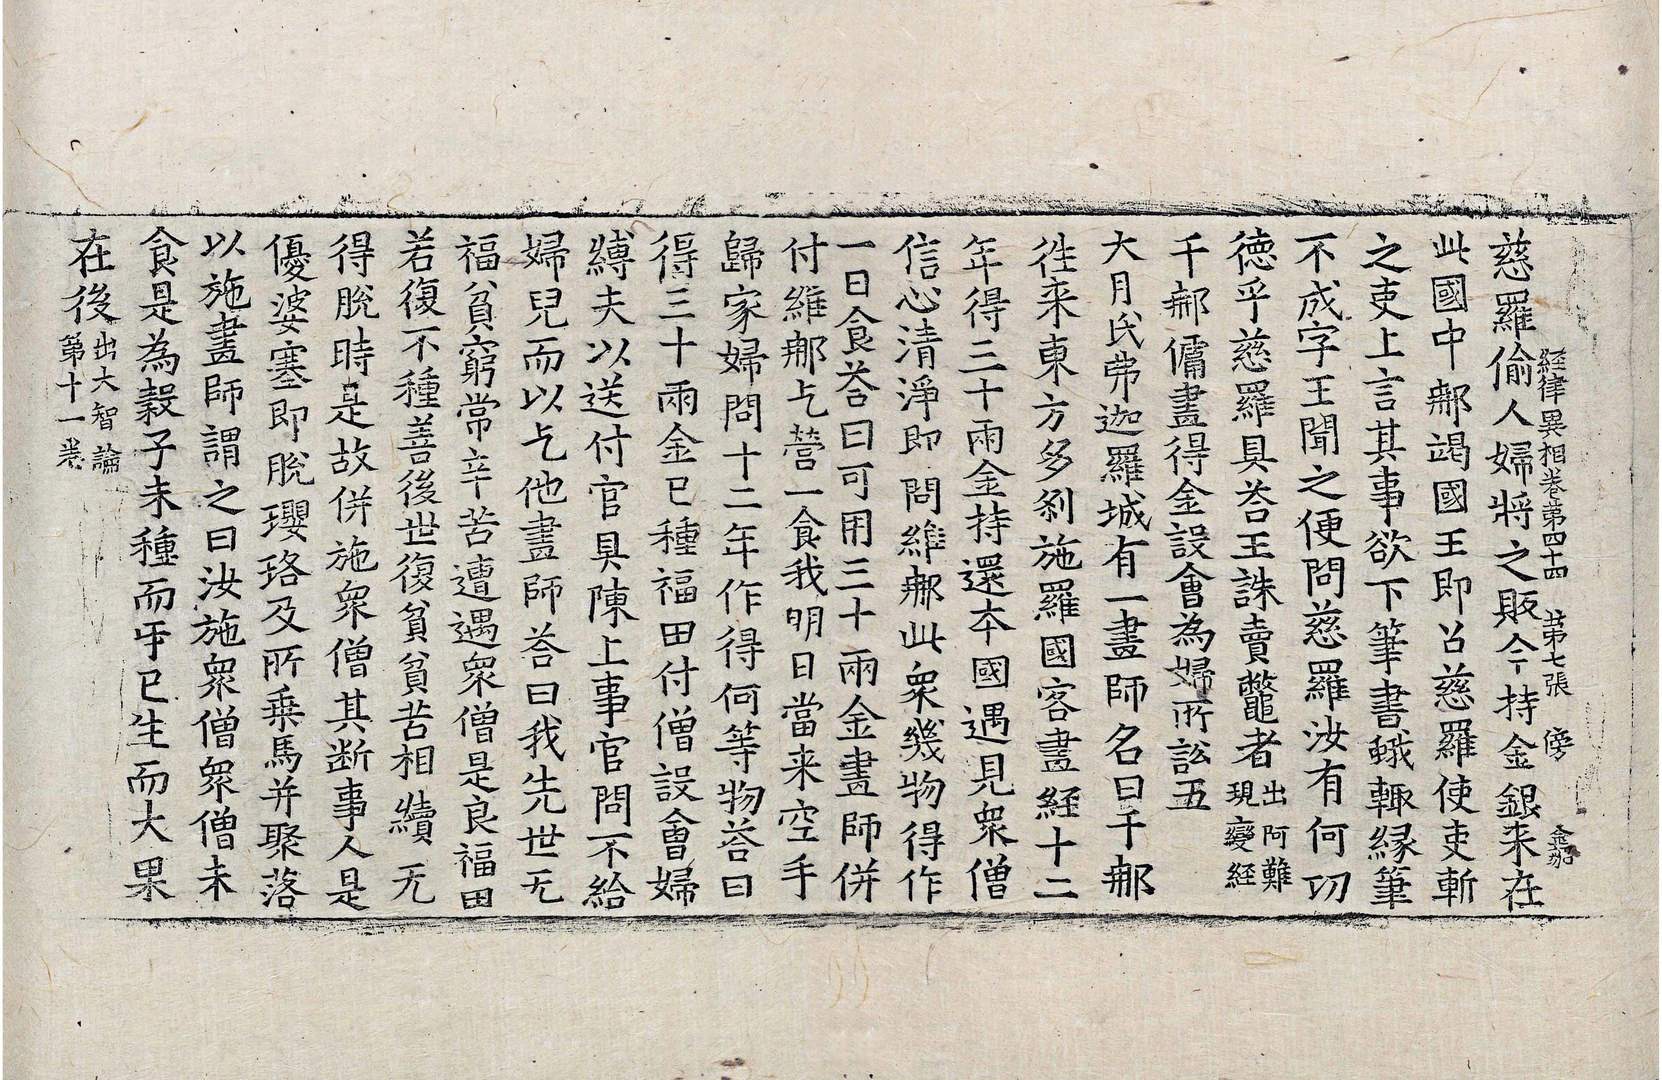 經律異相卷第四十四　第七張　傍
慈羅偷人婦將之販今持金銀来在
此國中𨚗竭國王即召慈羅使吏斬
之吏上言其事欲下筆書蛾輙縁筆
不成字王聞之便問慈羅汝有何功
德乎慈羅具荅王誅賣鼈者出阿難現變経
千𨚗傭畫得金設會為婦所訟五
大月氏弗迦羅城有一畫師名曰千𨚗
徃来東方多剎施羅國客畫経十二
年得三十兩金持還本國遇見衆僧
信心清淨即問維𨚗此衆幾物得作
一日食荅曰可用三十兩金畫師併
付維𨚗乞營一食我明日當来空手
歸家婦問十二年作得何等物荅曰
得三十兩金已種福田付僧設會婦
縛夫以送付官具陳上事官問不給
婦兒而以乞他畫師荅曰我先世无
福貧窮常辛苦遭遇衆僧是良福田
若復不種善後世復貧貧苦相續无
得脫時是故併施衆僧其断事人是
優婆塞即脫瓔珞及所乗馬并聚落
以施畫師謂之曰汝施衆僧衆僧未
食是為穀子未種而牙已生而大果
在後出大智論第十一卷